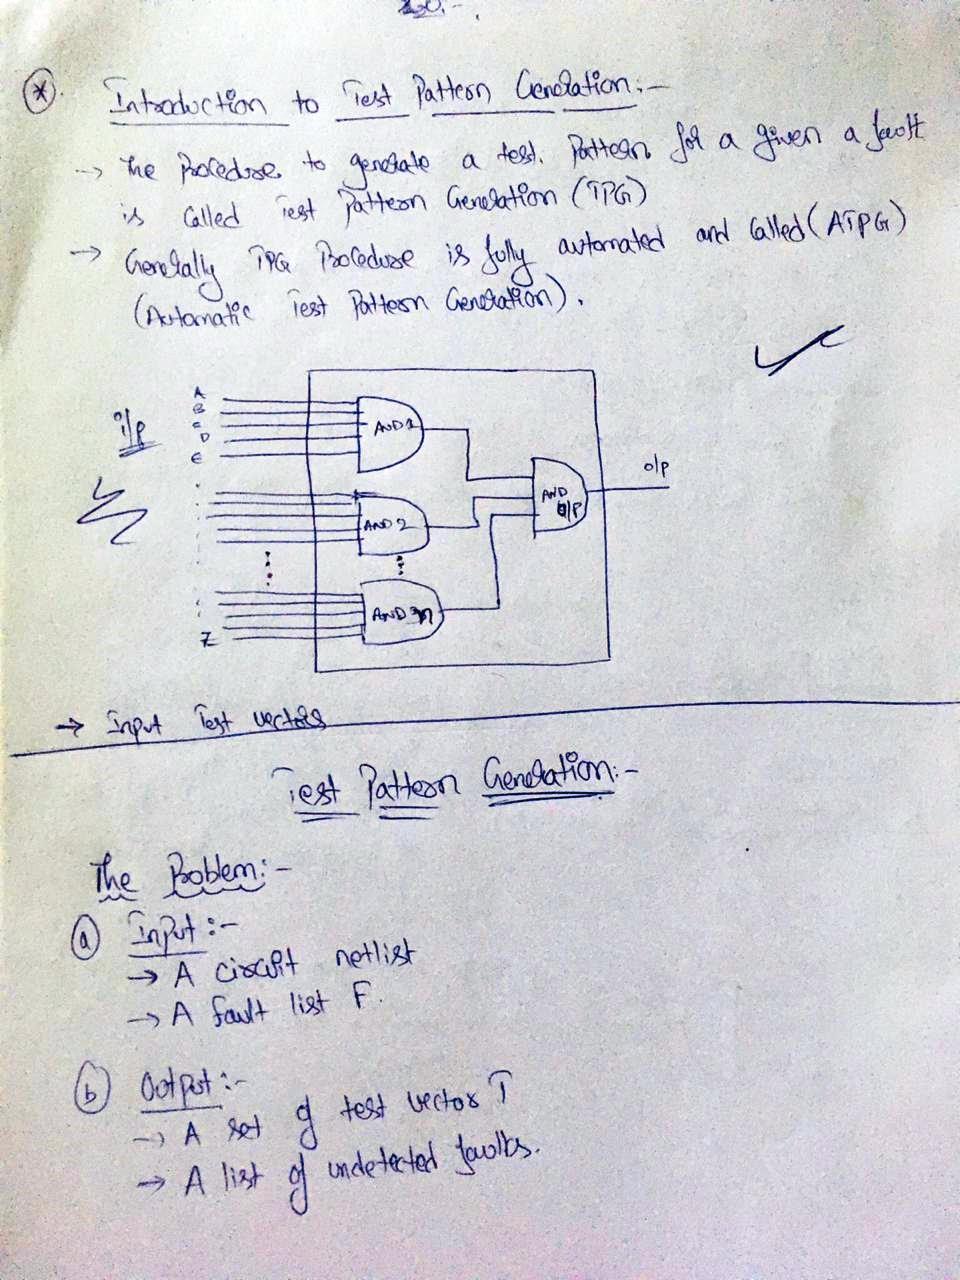 * Introduction to Test Pattern Generation:-
→ The Procedure to generate a test. Pattern for a given a fault
is Called Test Pattern Generation (TPG)
→ Generally TPG Procedure is fully automated and Called (ATPG)
(Automatic Test Pattern Generation).
i/p
A
B
C
D
E
Z
AND 1
AND 2
AND n
AND O/P
o/p
→ Input Test vectors
Test Pattern Generation:-
The Problem:-
a Input:-
→ A circuit netlist
→ A fault list F.
b Output:-
→ A set of test vector T
→ A list of undetected faults.